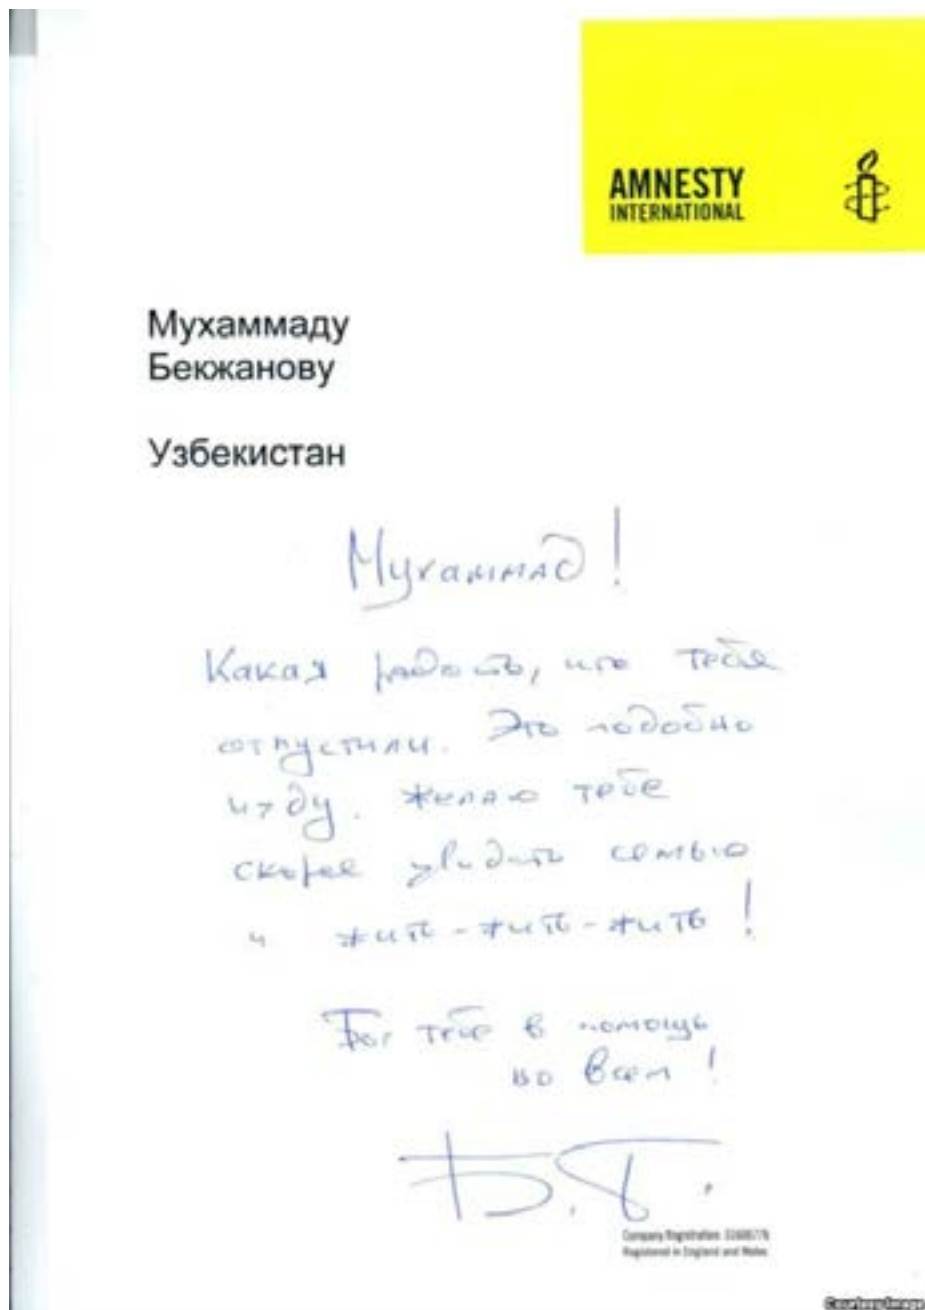 AMNESTY
INTERNATIONAL
Мухаммаду
Бекжанову
Узбекистан
Мухаммад!
Какая радость, что тебя
отпустили. Это подобно
чуду. Желаю тебе
скорее увидеть семью
и жить-жить-жить!
Бог тебе в помощь
во всем!
Б.Г.
Company Registration: 01606776
Registered in England and Wales
Courtesy Image